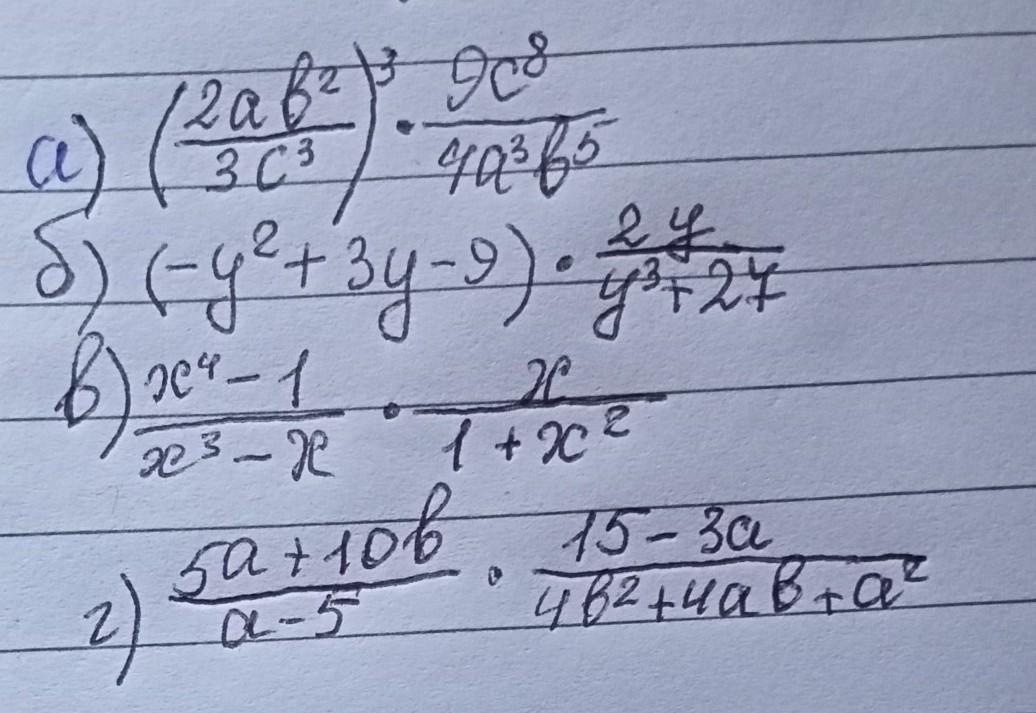 а) (2ab²/3c³)³ · 9c⁸/4a³b⁵
б) (-y²+3y-9) · 2y/y³+27
в) x⁴-1/x³-x · x/1+x²
г) 5a+10b/a-5 · 15-3a/4b²+4ab+a²